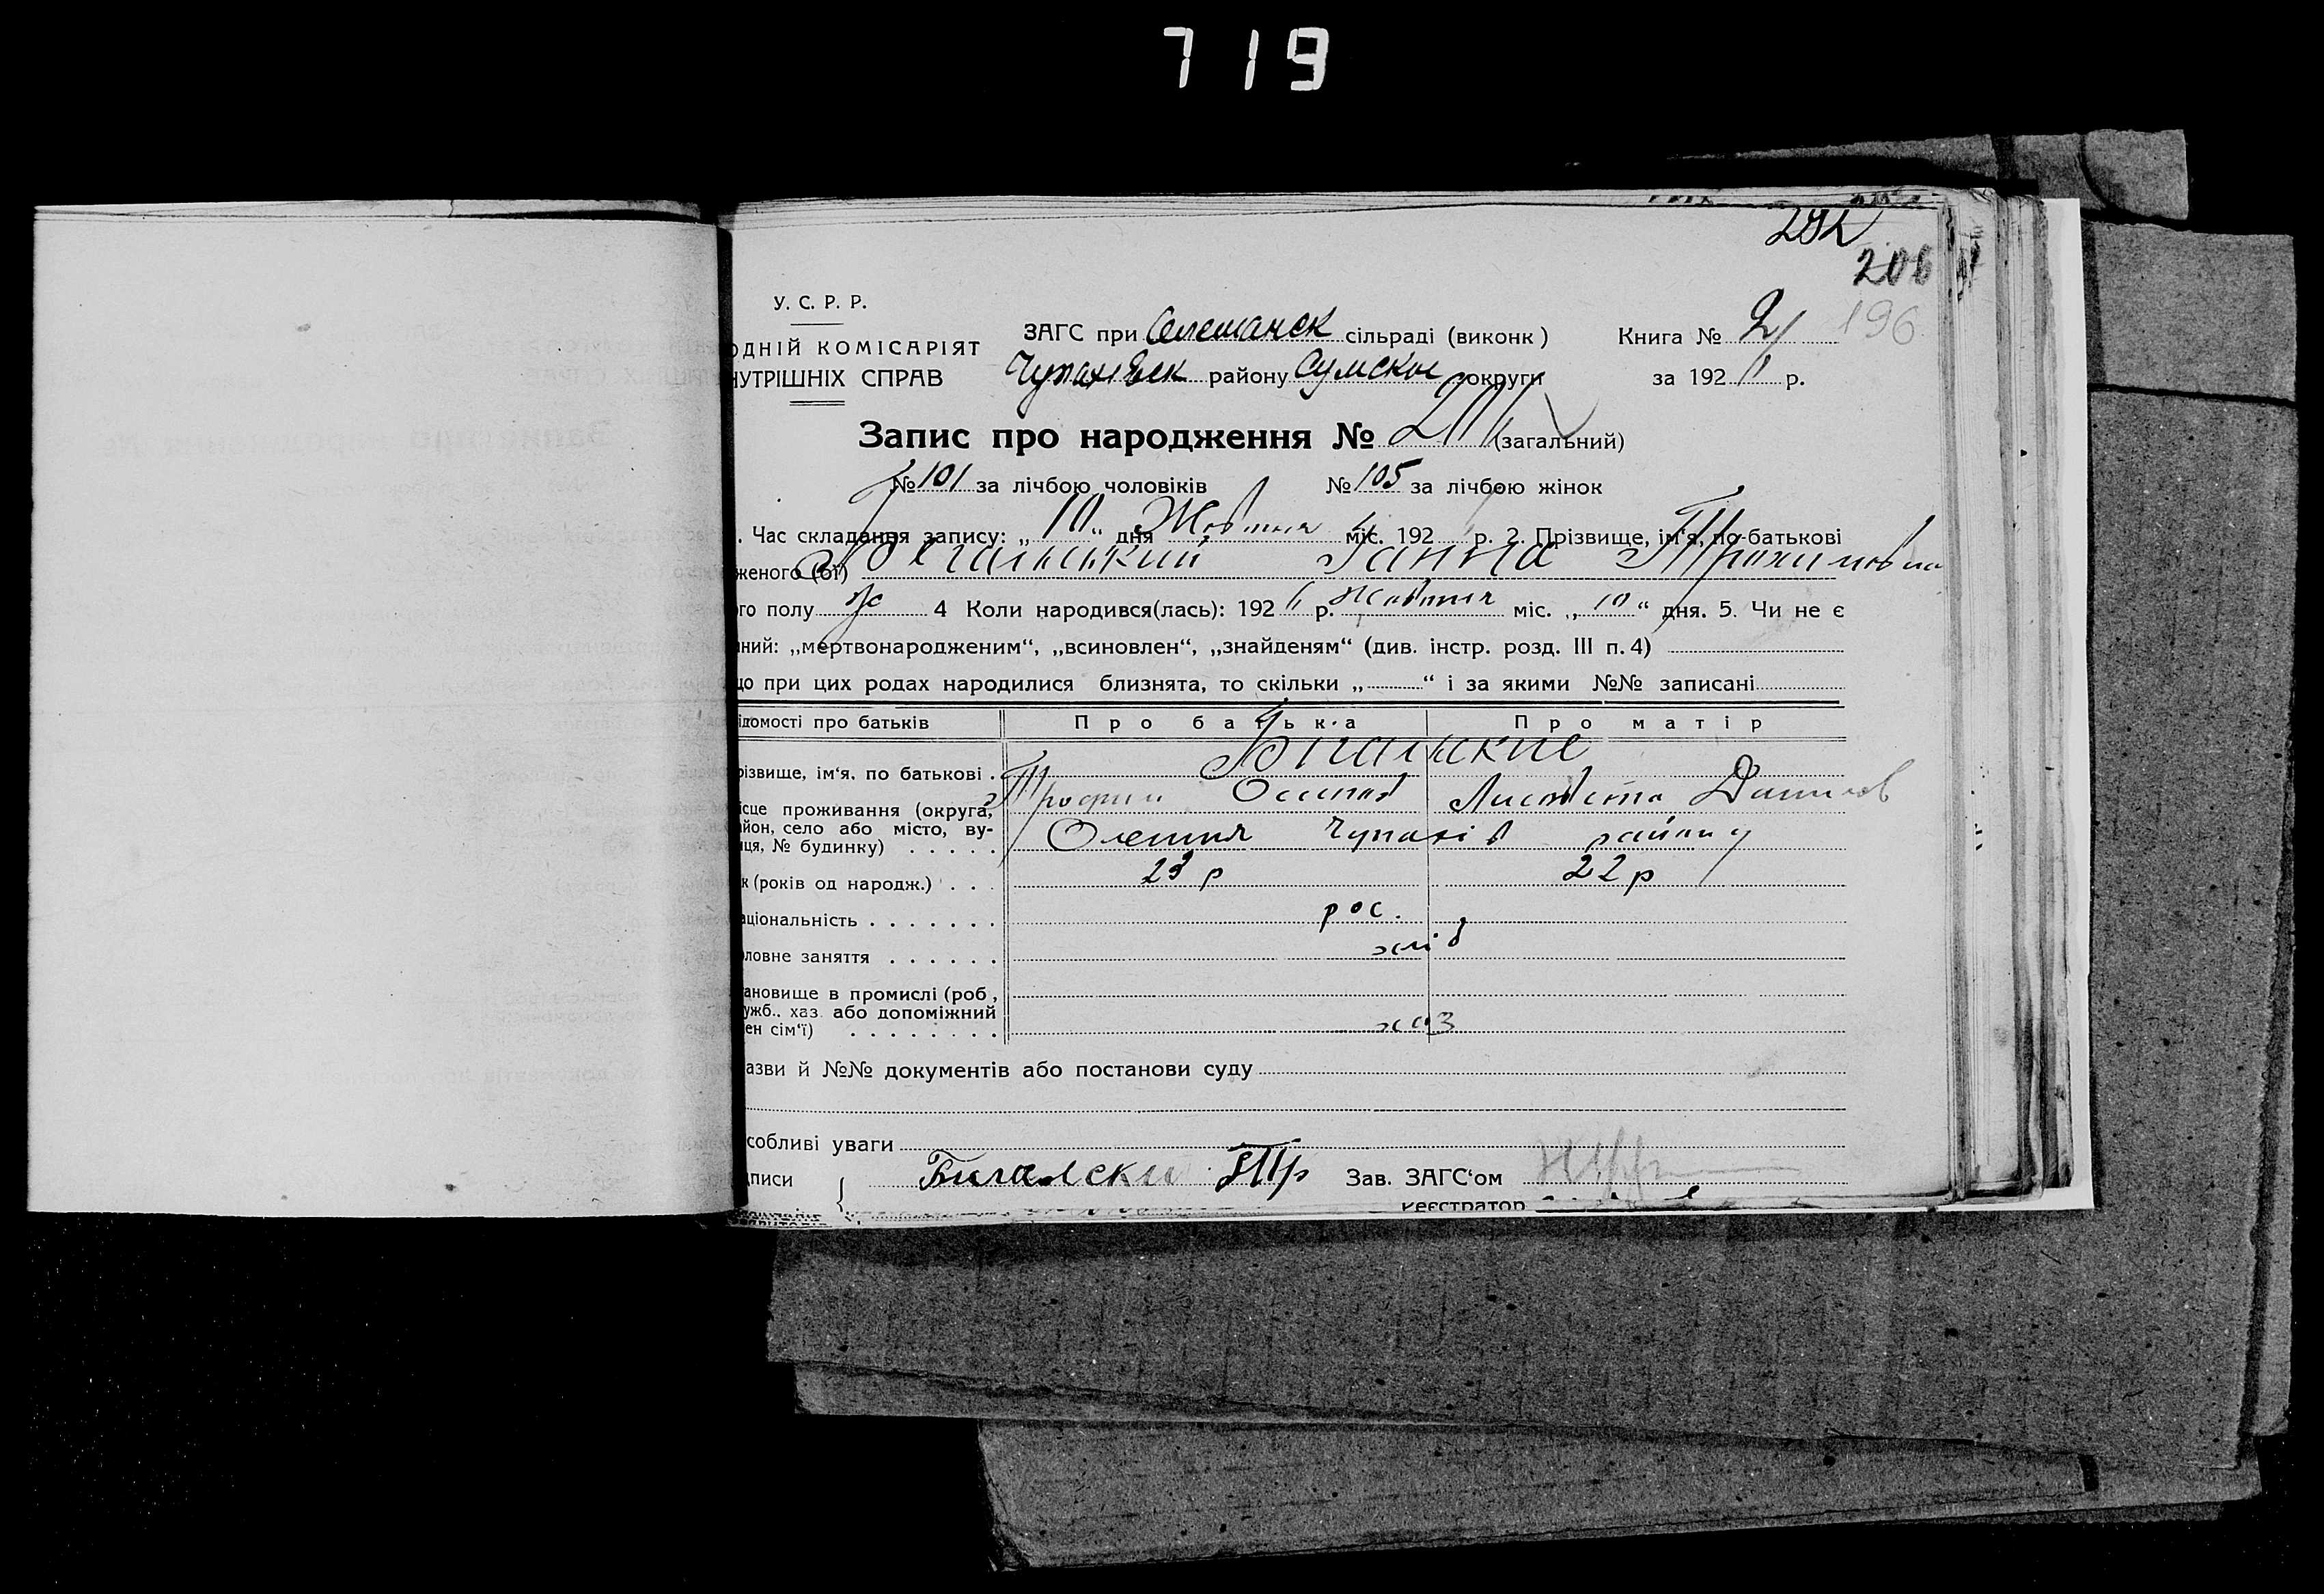 719
292
206
196
У. С. Р. Р.
ОДНІЙ КОМІСАРІЯТ
НУТРІШНІХ СПРАВ
ЗАГС при Олешанск сільраді (виконк )
Чупахівск району Сумскої округи
Книга № 2
за 192 р.
Запис про народження № (загальний)
№ 101 за лічбою чоловіків № 105 за лічбою жінок
. Час складання запису: „ 10 “ дня Жовтня міс. 192 р. 2. Прізвище, ім‘я, по-батькові
женого (ої) Ганна Трохимовна
го полу ж 4 Коли народився(лась): 192 р. Жовтня міс. „ 10 “ дня. 5. Чи не є
ний: „мертвонародженим“, „всиновлен“, „знайденям“ (див. інстр. розд. III п. 4)
що при цих родах народилися близнята, то скільки „ “ і за якими №№ записані
ідомості про батьків Про батька Про матір
різвище, ім‘я, по батькові .
Трофим Осипов Лисавета Данилов
ісце проживання (округа,
йон, село або місто, ву-
ця, № будинку) . . . . .
Олешня Чупахів району
к (років од народж.) . . . 23 р 22 р
аціональність . . . . . . . рос.
ловне заняття . . . . . . хліб
ановище в промислі (роб ,
ужб.. хаз. або допоміжний
ен сім‘ї) . . . . . . . . хаз
азви й №№ документів або постанови суду
собливі уваги
писи { Бигалски Тр Зав. ЗАГС‘ом
Реєстратор